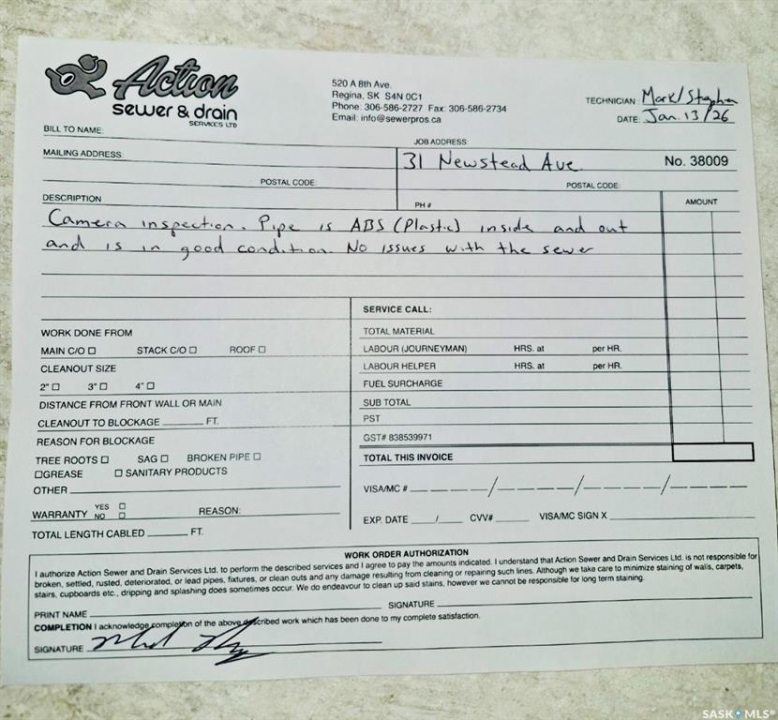 Action
sewer & drain
SERVICES LTD
520 A 8th Ave.
Regina, SK S4N 0C1
Phone: 306-586-2727 Fax: 306-586-2734
Email: info@sewerpros.ca
TECHNICIAN: Mark/Stephen
DATE: Jan. 13/26
BILL TO NAME:
JOB ADDRESS:
MAILING ADDRESS:
31 Newstead Ave.
No. 38009
POSTAL CODE:
POSTAL CODE:
DESCRIPTION
PH #
AMOUNT
Camera inspection. Pipe is ABS (Plastic) inside and out
and is in good condition. No issues with the sewer
SERVICE CALL:
WORK DONE FROM
TOTAL MATERIAL
MAIN C/O □ STACK C/O □ ROOF □
LABOUR (JOURNEYMAN) HRS. at per HR.
CLEANOUT SIZE
LABOUR HELPER HRS. at per HR.
2" □ 3" □ 4" □
FUEL SURCHARGE
DISTANCE FROM FRONT WALL OR MAIN
SUB TOTAL
CLEANOUT TO BLOCKAGE ______ FT.
PST
REASON FOR BLOCKAGE
GST# 838539971
TREE ROOTS □ SAG □ BROKEN PIPE □
TOTAL THIS INVOICE
□GREASE □ SANITARY PRODUCTS
OTHER
VISA/MC #
WARRANTY YES □ NO □ REASON:
EXP. DATE ___/___ CVV# ______ VISA/MC SIGN X
TOTAL LENGTH CABLED ______ FT.
WORK ORDER AUTHORIZATION
I authorize Action Sewer and Drain Services Ltd. to perform the described services and I agree to pay the amounts indicated. I understand that Action Sewer and Drain Services Ltd. is not responsible for
broken, settled, rusted, deteriorated, or lead pipes, fixtures, or clean outs and any damage resulting from cleaning or repairing such lines. Although we take care to minimize staining of walls, carpets,
stairs, cupboards etc., dripping and splashing does sometimes occur. We do endeavour to clean up said stains, however we cannot be responsible for long term staining.
PRINT NAME SIGNATURE
COMPLETION I acknowledge completion of the above described work which has been done to my complete satisfaction.
SIGNATURE
SASK MLS®